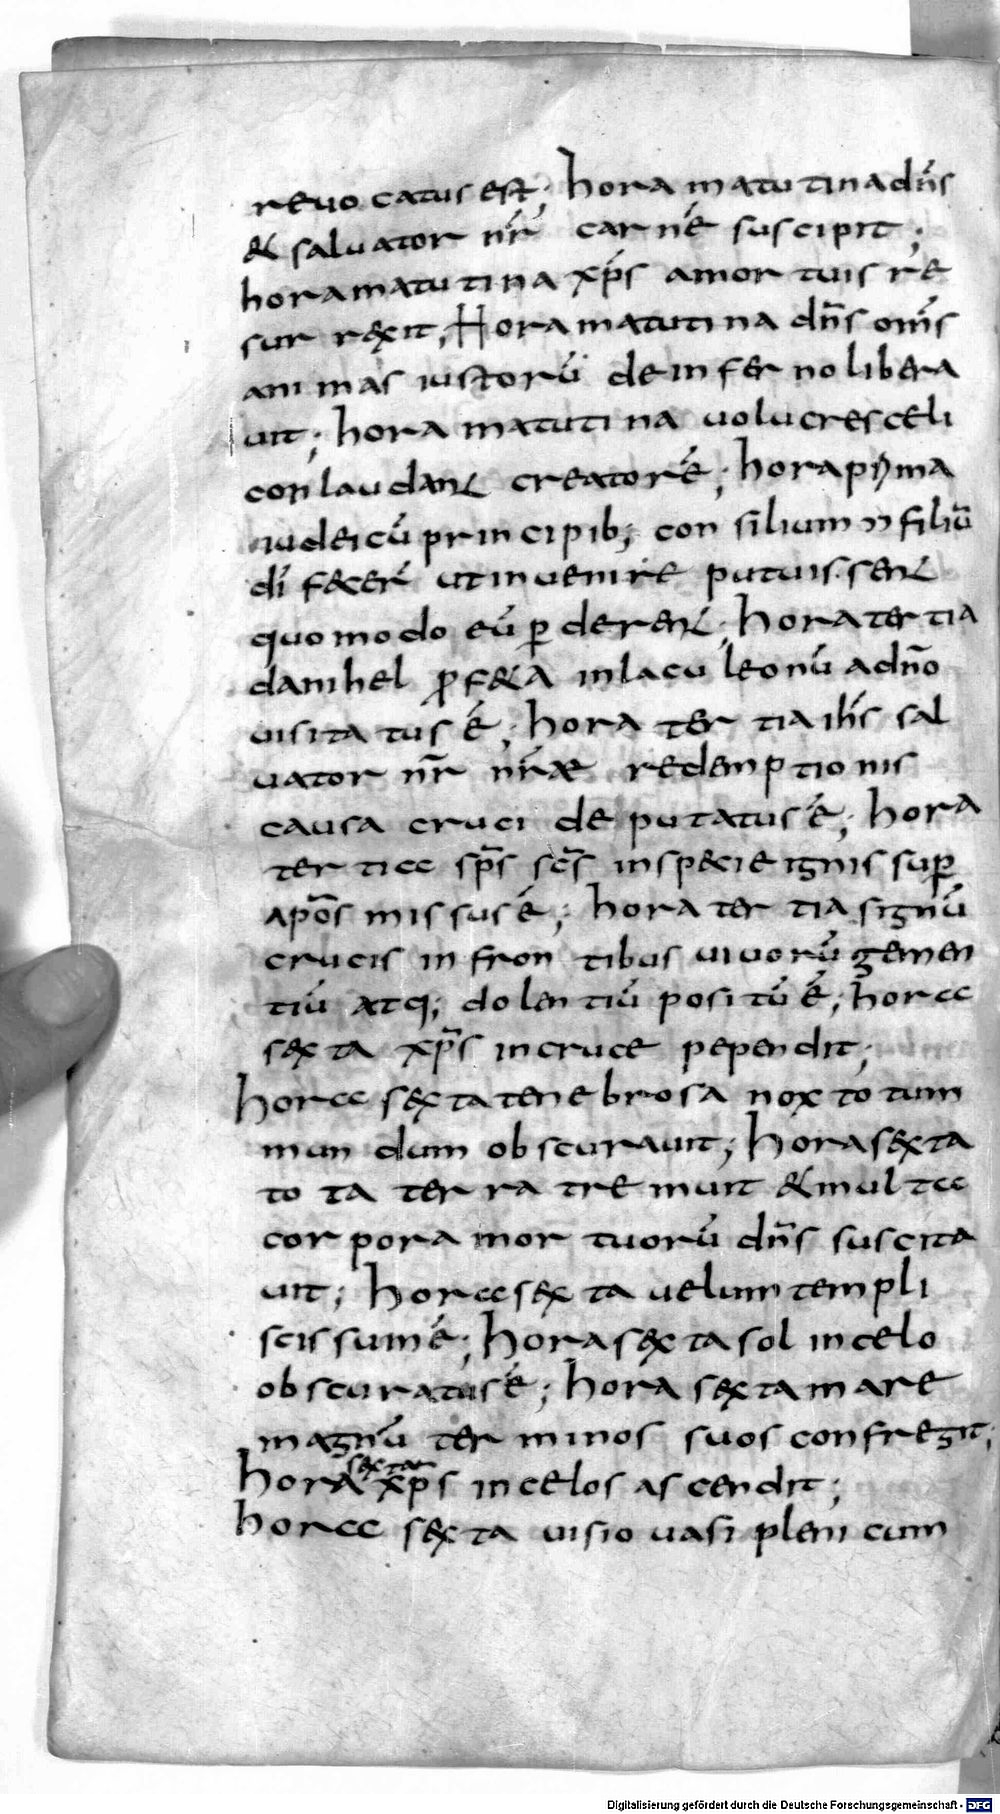 reuocatus est; hora matutina dn̄s
& saluator nr̄ carnē suscipit;
hora matutina xp̄s amortuis re
surrexit; Hora matutina dn̄s om̄s
animas iustorū de inferno libera
uit; hora matutina uolucres celi
conlaudant creatorē; hora pryma
iudei cū principib; consilium in filiū
dī fecer̄ ut inuenire putuissent
quomodo eū perderent; hora tertia
danihel prof&a in lacu leonū adn̄o
uisitatus ē; hora tertia ih̄s sal
uator nr̄ nr̄ae redemptionis
causa cruci deputatus ē; hora
tertia sp̄s sc̄s in specie ignis sup̄
apōs missus ē; hora tertia signū
crucis in frontibus uiuorū gemen
tiū atq; dolentiū positū ē; hora
sexta xp̄s in cruce pependit;
hora sexta tenebrosa nox totum
mundum obscurauit; hora sexta
tota terra tremuit & multa
corpora mortuorū dn̄s suscita
uit; hora sexta uelum templi
scissum ē; hora sexta sol in celo
obscuratus ē; hora sexta mare
magnū terminos suos confregit;
hora sexta xp̄s in celos ascendit;
hora sexta uisio uasi pleni cum
Digitalisierung gefördert durch die Deutsche Forschungsgemeinschaft - DFG